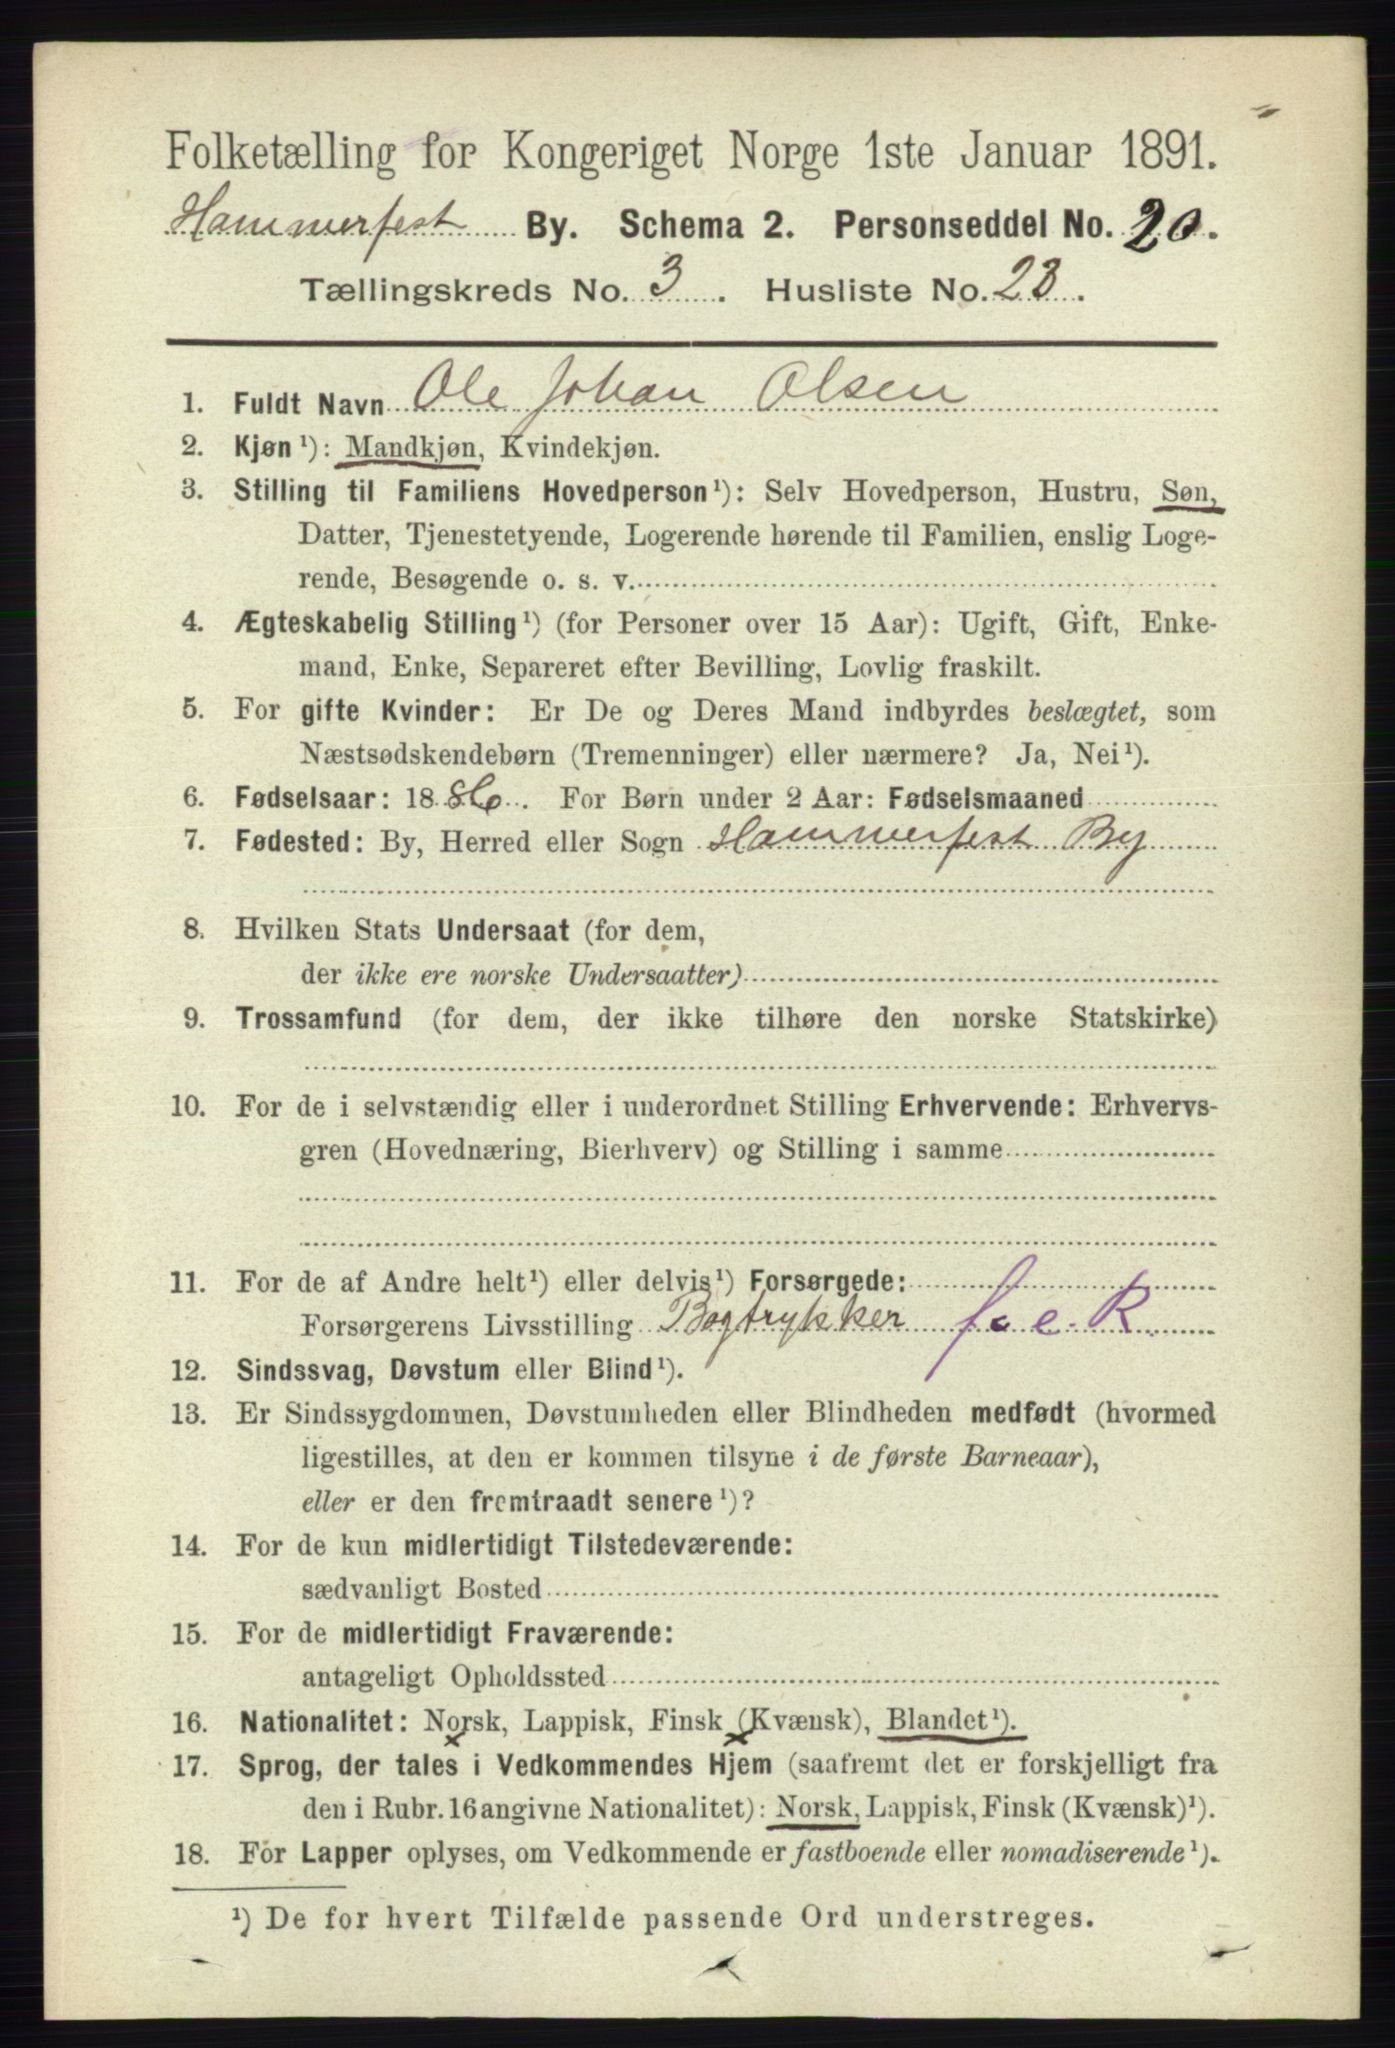 Folketælling for Kongeriget Norge 1ste Januar 1891.
Hammerfest By. Schema 2. Personseddel No. 20.
Tællingskreds No. 3. Husliste No. 23.
1. Fuldt Navn Ole Johan Olsen
2. Kjøn¹): Mandkjøn, Kvindekjøn.
3. Stilling til Familiens Hovedperson¹): Selv Hovedperson, Hustru, Søn,
Datter, Tjenestetyende, Logerende hørende til Familien, enslig Loge-
rende, Besøgende o. s. v.
4. Ægteskabelig Stilling¹) (for Personer over 15 Aar): Ugift, Gift, Enke-
mand, Enke, Separeret efter Bevilling, Lovlig fraskilt.
5. For gifte Kvinder: Er De og Deres Mand indbyrdes beslægtet, som
Næstsødskendebørn (Tremenninger) eller nærmere? Ja, Nei¹).
6. Fødselsaar: 1886. For Børn under 2 Aar: Fødselsmaaned
7. Fødested: By, Herred eller Sogn Hammerfest By
8. Hvilken Stats Undersaat (for dem,
der ikke ere norske Undersaatter)
9. Trossamfund (for dem, der ikke tilhøre den norske Statskirke)
10. For de i selvstændig eller i underordnet Stilling Erhvervende: Erhvervs-
gren (Hovednæring, Bierhverv) og Stilling i samme
11. For de af Andre helt¹) eller delvis¹) Forsørgede:
Forsørgerens Livsstilling Bogtrykker f. e. R.
12. Sindssvag, Døvstum eller Blind¹).
13. Er Sindssygdommen, Døvstumheden eller Blindheden medfødt (hvormed
ligestilles, at den er kommen tilsyne i de første Barneaar),
eller er den fremtraadt senere¹)?
14. For de kun midlertidigt Tilstedeværende:
sædvanligt Bosted
15. For de midlertidigt Fraværende:
antageligt Opholdssted
16. Nationalitet: Norsk, Lappisk, Finsk (Kvænsk), Blandet¹).
17. Sprog, der tales i Vedkommendes Hjem (saafremt det er forskjelligt fra
den i Rubr. 16 angivne Nationalitet): Norsk, Lappisk, Finsk (Kvænsk)¹).
18. For Lapper oplyses, om Vedkommende er fastboende eller nomadiserende¹).
¹) De for hvert Tilfælde passende Ord understreges.